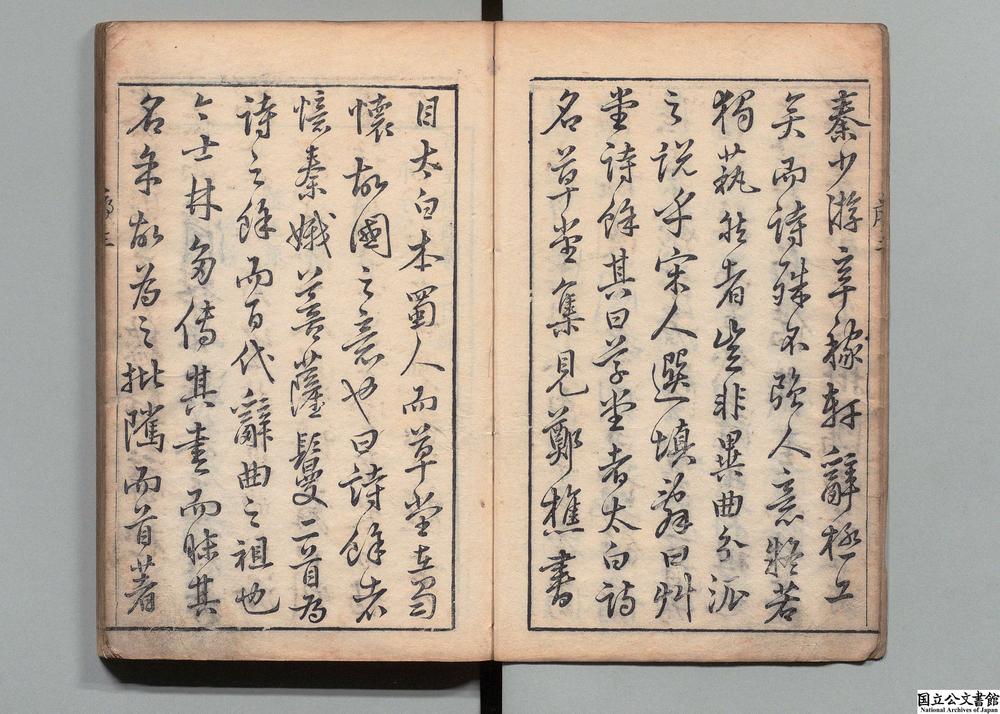 秦少游辛稼軒辭極工
矣而詩殊不強人意疑若
獨蓺然者豈非異曲分派
之說乎宋人選填辭曰艸
堂詩餘其曰草堂者太白詩
名草堂集見鄭樵書
目太白本蜀人而草堂在蜀
懷故國之意也曰詩餘者
憶秦娥菩薩鬘二首為
詩之餘而百代辭曲之祖也
今士林多傳其書而昧其
名余故為之批騭而首著
国立公文書館
National Archives of Japan